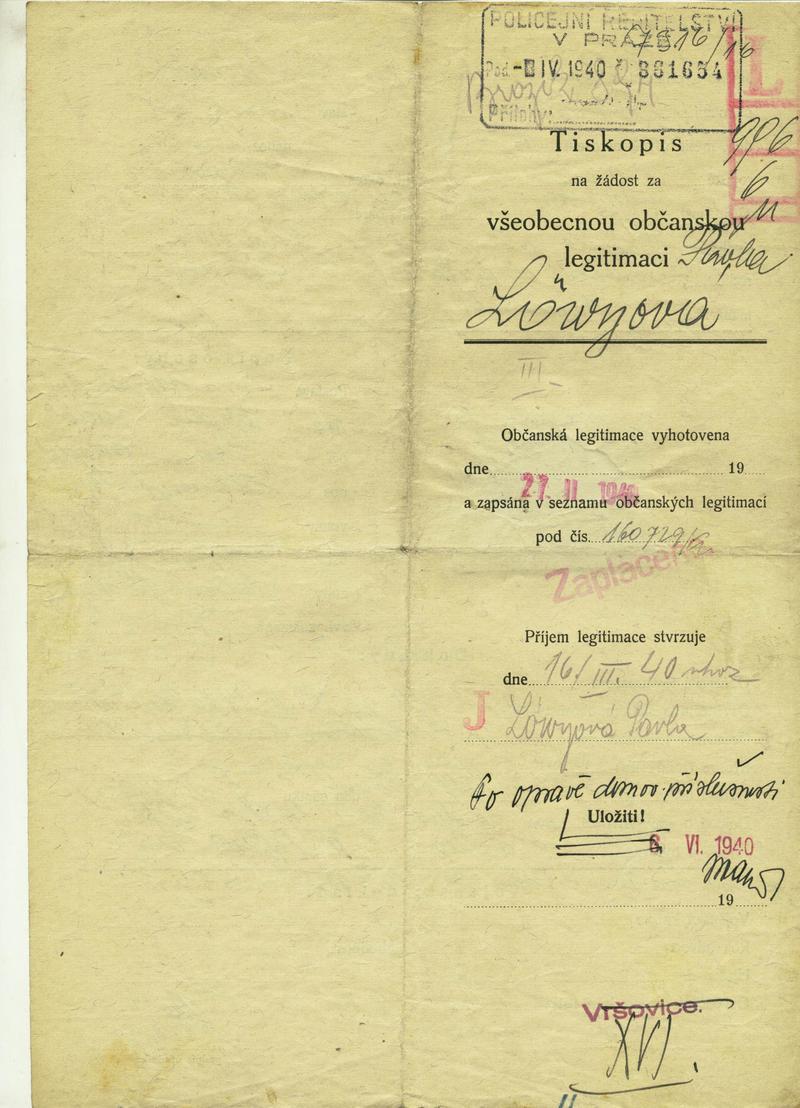 POLICEJNÍ ŘEDITELSTVÍ
V PRAZE
7316/16
Pod. - IV. 1940 č. 381634
Přílohy:
L
Tiskopis
996
na žádost za
6
všeobecnou občanskou
legitimaci Pavla
Löwyova
III
Občanská legitimace vyhotovena
dne 19
27. II 1940
a zapsána v seznamu občanských legitimací
pod čís. 160729/
Zaplaceno
Příjem legitimace stvrzuje
dne 16/III. 40
J Löwyová Pavla
Po opravě domov. příslušnosti
Uložiti!
6. VI. 1940
19
Vršovice.
XVI.